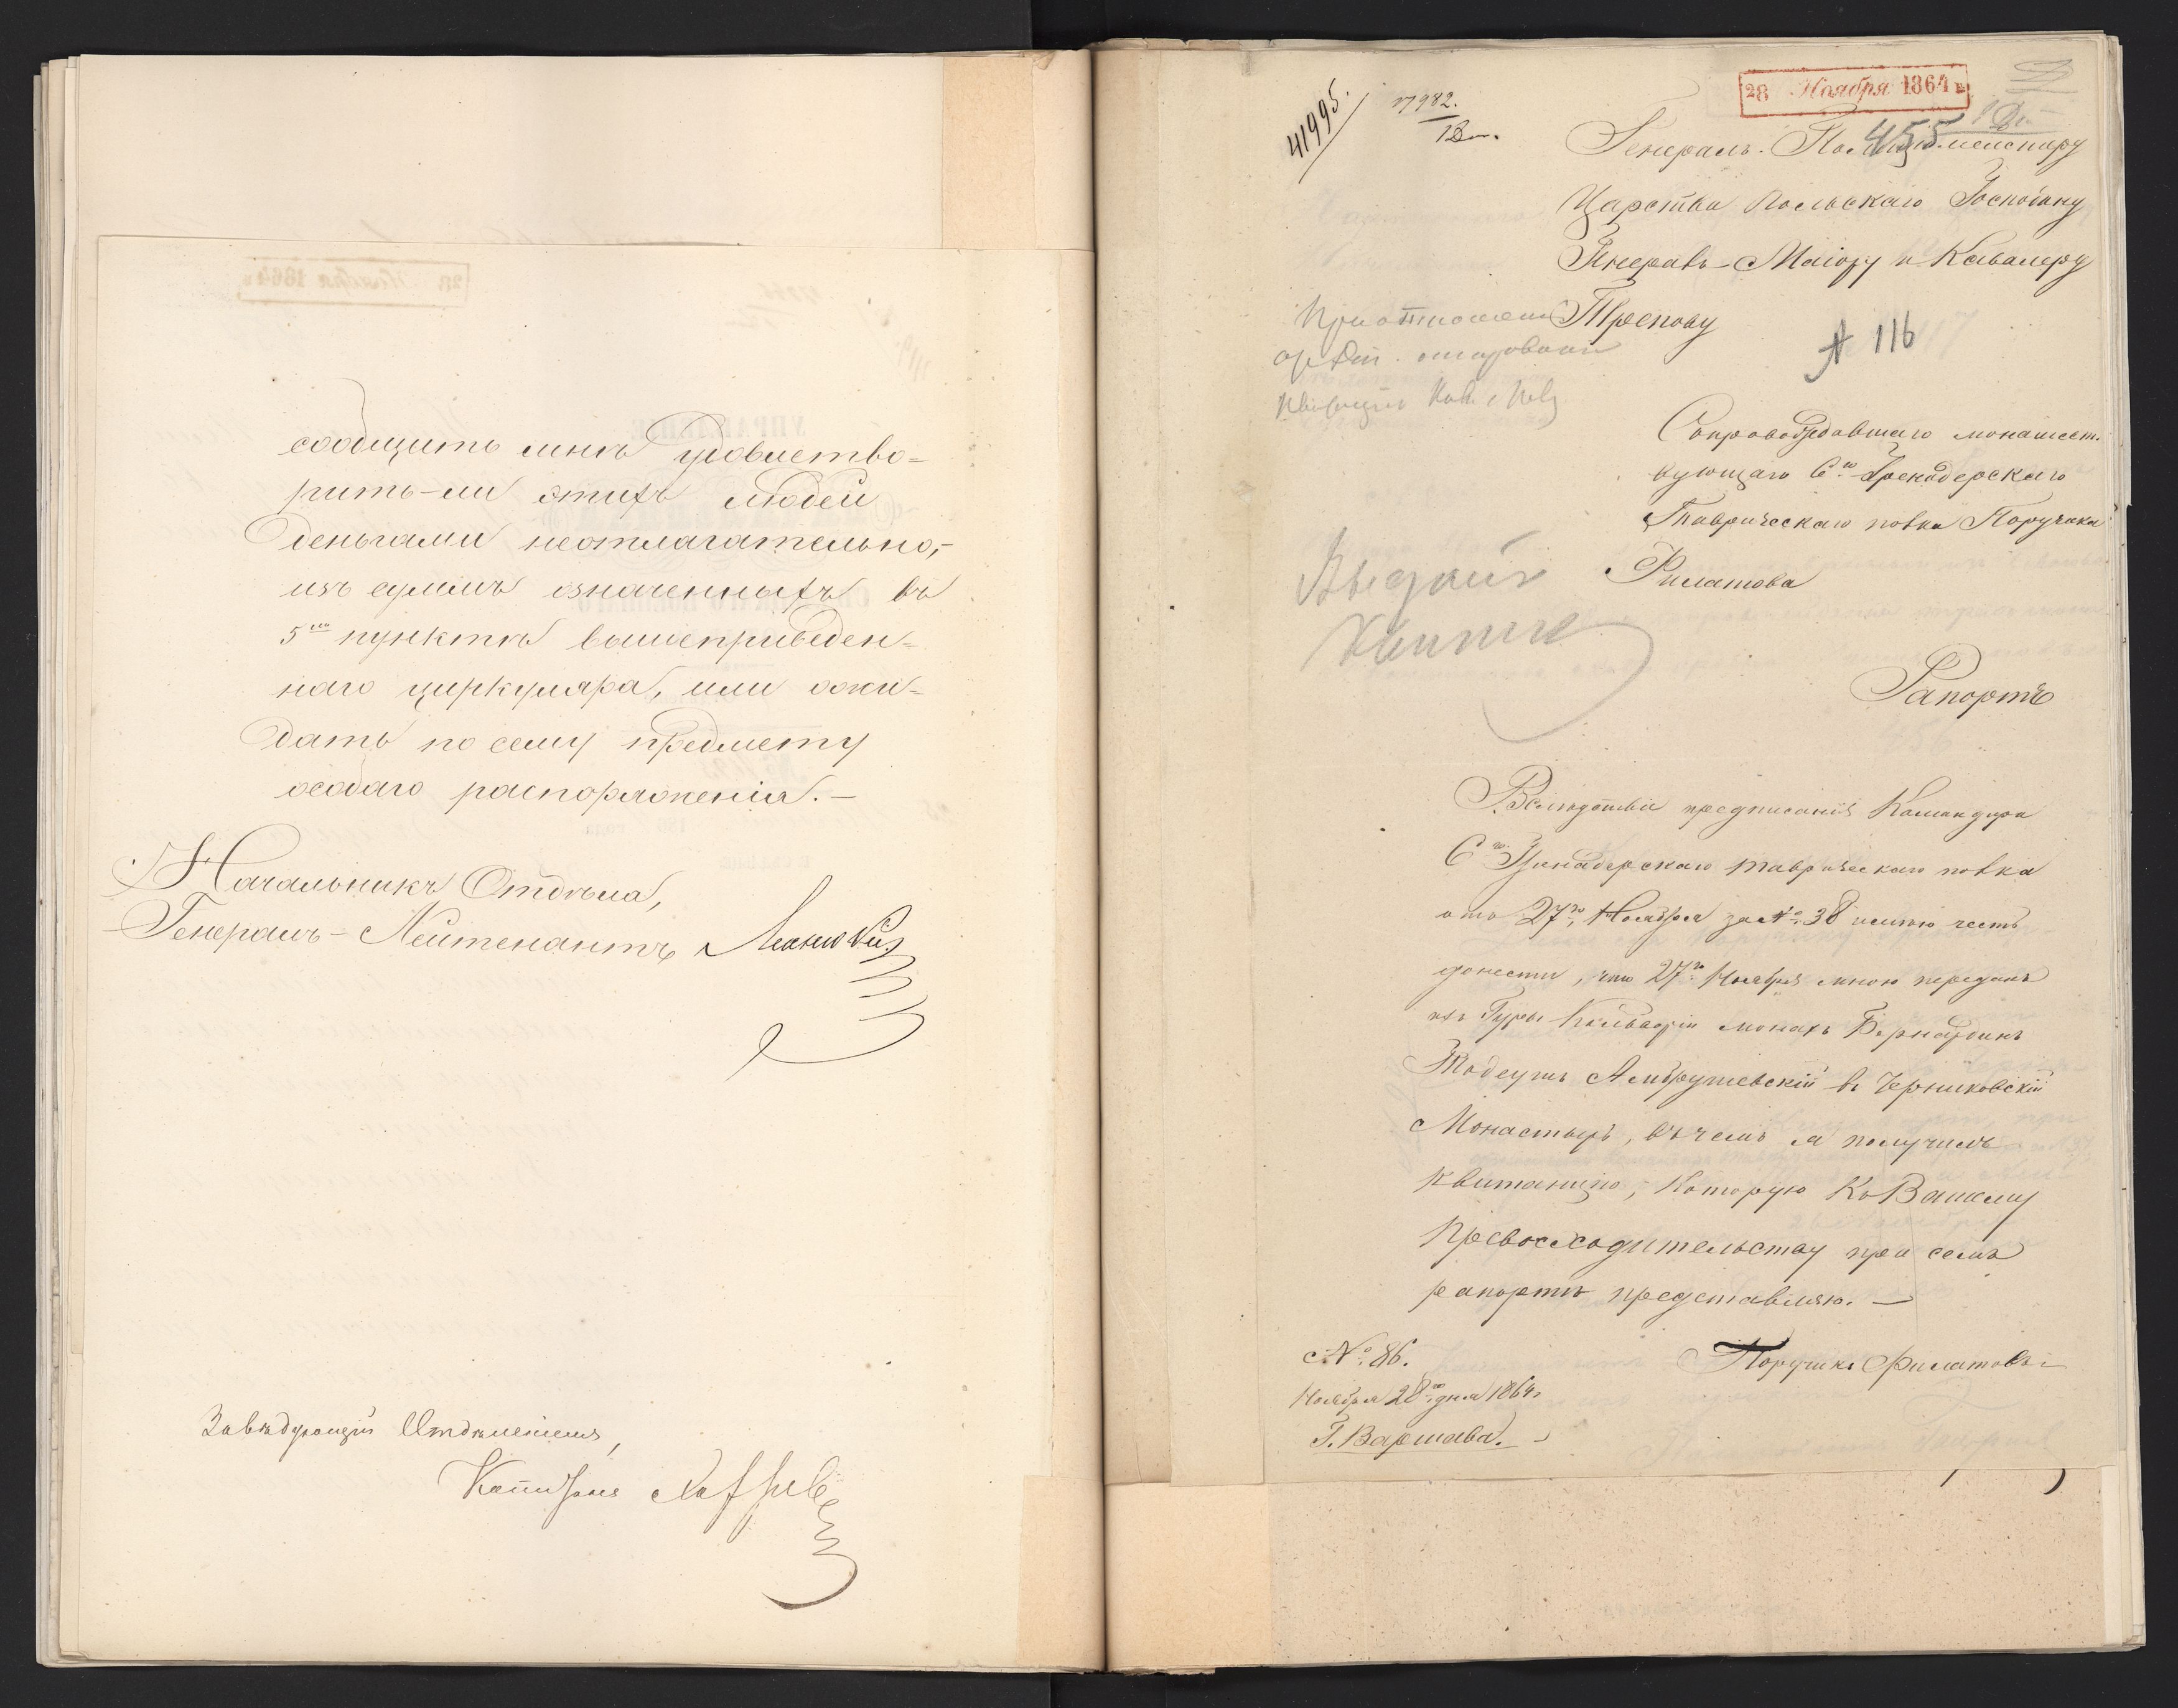 сообщить мнѣ удовлетво-
рить-ли этихъ людей
деньгами неотлагательно,-
изъ суммъ означенныхъ въ
5мъ пунктѣ вышеприведен-
наго циркуляра, или ожи-
дать по сему предмету
особаго распоряженія.-
Начальникъ Отдѣла,
Генералъ-Лейтенантъ
Завѣдующій Отдѣленіемъ,
28 Ноября 1864 г.
41995.
17982.
455
Генералъ-Полицiймейстеру
Царства Польскаго Господину
Генералъ-Маіору и Кавалеру
Трепову
№ 116
Сопровождавшаго монашест-
вующаго 6го Гренадерскаго
Таврическаго полка Поручика
Филатова
Рапортъ
Вслѣдствіе предписанія Командира
6го Гренадерскаго Таврическаго полка
отъ 27го Ноября за № 38 имѣю честь
донести, что 27го Ноября мною переданъ
изъ Гуры Кальваріи монахъ Бернардинъ
Тадеушъ Амбрушевскій въ Черняковскій
Монастырь, въ чемъ я получилъ
квитанцію, которую Къ Вашему
Превосходительству при семъ
рапортѣ представляю.-
Поручикъ Филатовъ
№ 86.
Ноября 28го дня 1864 г.
Г. Варшава.